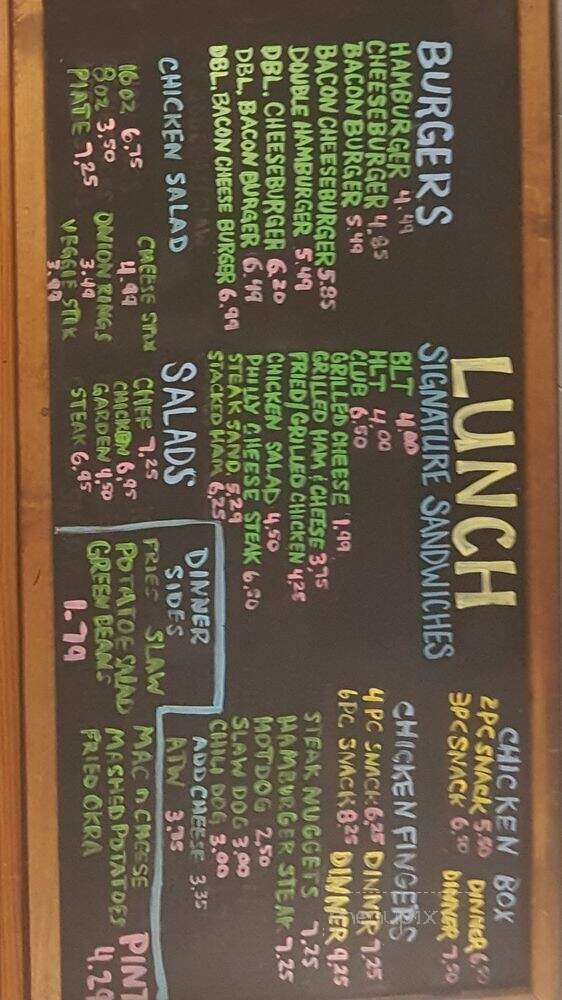 LUNCH
BURGERS
HAMBURGER 4.49
CHEESEBURGER 4.85
BACON BURGER 5.49
BACON CHEESEBURGER 5.85
DOUBLE HAMBURGER 5.49
DBL. CHEESEBURGER 6.20
DBL. BACON BURGER 6.49
DBL. BACON CHEESE BURGER 6.99
CHICKEN SALAD
16 OZ 6.75
8 OZ 3.50
PLATE 7.25
CHEESE STIX
4.99
ONION RINGS
3.49
VEGGIE STIX
3.99
SIGNATURE SANDWICHES
BLT 4.00
HLT 4.00
CLUB 6.50
GRILLED CHEESE 1.99
GRILLED HAM & CHEESE 3.75
FRIED/GRILLED CHICKEN 4.25
CHICKEN SALAD 4.50
PHILLY CHEESE STEAK 6.50
STEAK SAND. 5.29
STACKED HAM 6.25
SALADS
CHEF 7.25
CHICKEN 6.95
GARDEN 4.50
STEAK 6.95
CHICKEN BOX
2PC SNACK 5.50 DINNER 6.50
3PC SNACK 6.10 DINNER 7.50
CHICKEN FINGERS
4 PC SNACK 6.25 DINNER 7.25
6 PC SNACK 8.25 DINNER 9.25
STEAK NUGGETS 7.25
HAMBURGER STEAK 7.25
HOTDOG 2.50
SLAW DOG 3.00
CHILI DOG 3.00
ADD CHEESE .35
ATW 3.75
DINNER SIDES
FRIES SLAW
POTATOE SALAD
GREEN BEANS
1.79
MAC N CHEESE
MASHED POTATOES
FRIED OKRA
PINT
4.29
menupix